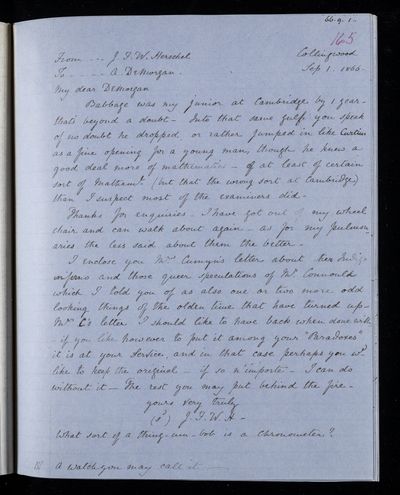 66.9.1-
165
From - - - J. F. W. Herschel Collingwood
To - - - A. DeMorgan. Sep 1. 1866-
My dear DeMorgan
Babbage was my junior at Cambridge by 1 year-
that's beyond a doubt - Into that same gulf you speak
of no doubt he dropped, or rather jumped in like Curtius
as a fine opening for a young man, though he knew a
good deal more of mathematics - of at least of certain
sort of Mathem.s (but that the wrong sort at Cambridge)
than I suspect most of the examiners did-
Thanks for enquiries - I have got out of my wheel
chair and can walk about again - as for my
aries the less said about them the better -
I enclose you Mrs letter about her
inferno and those queer speculations of Mr
which I told you of as also one or two more odd
looking things of the olden time that have turned up-
Mrs C's letter I should like to have back when done with
if you like however to put it among your "Paradoxes"
it is at your service, and in that case perhaps you wd
like to keep the original - if so n'importe - I can do
without it - The rest you may put behind the fire-
yours very truly
(sd) J. F. W. H -
What sort of a thing-um-bob is a Chronometer?
A watch you may call it